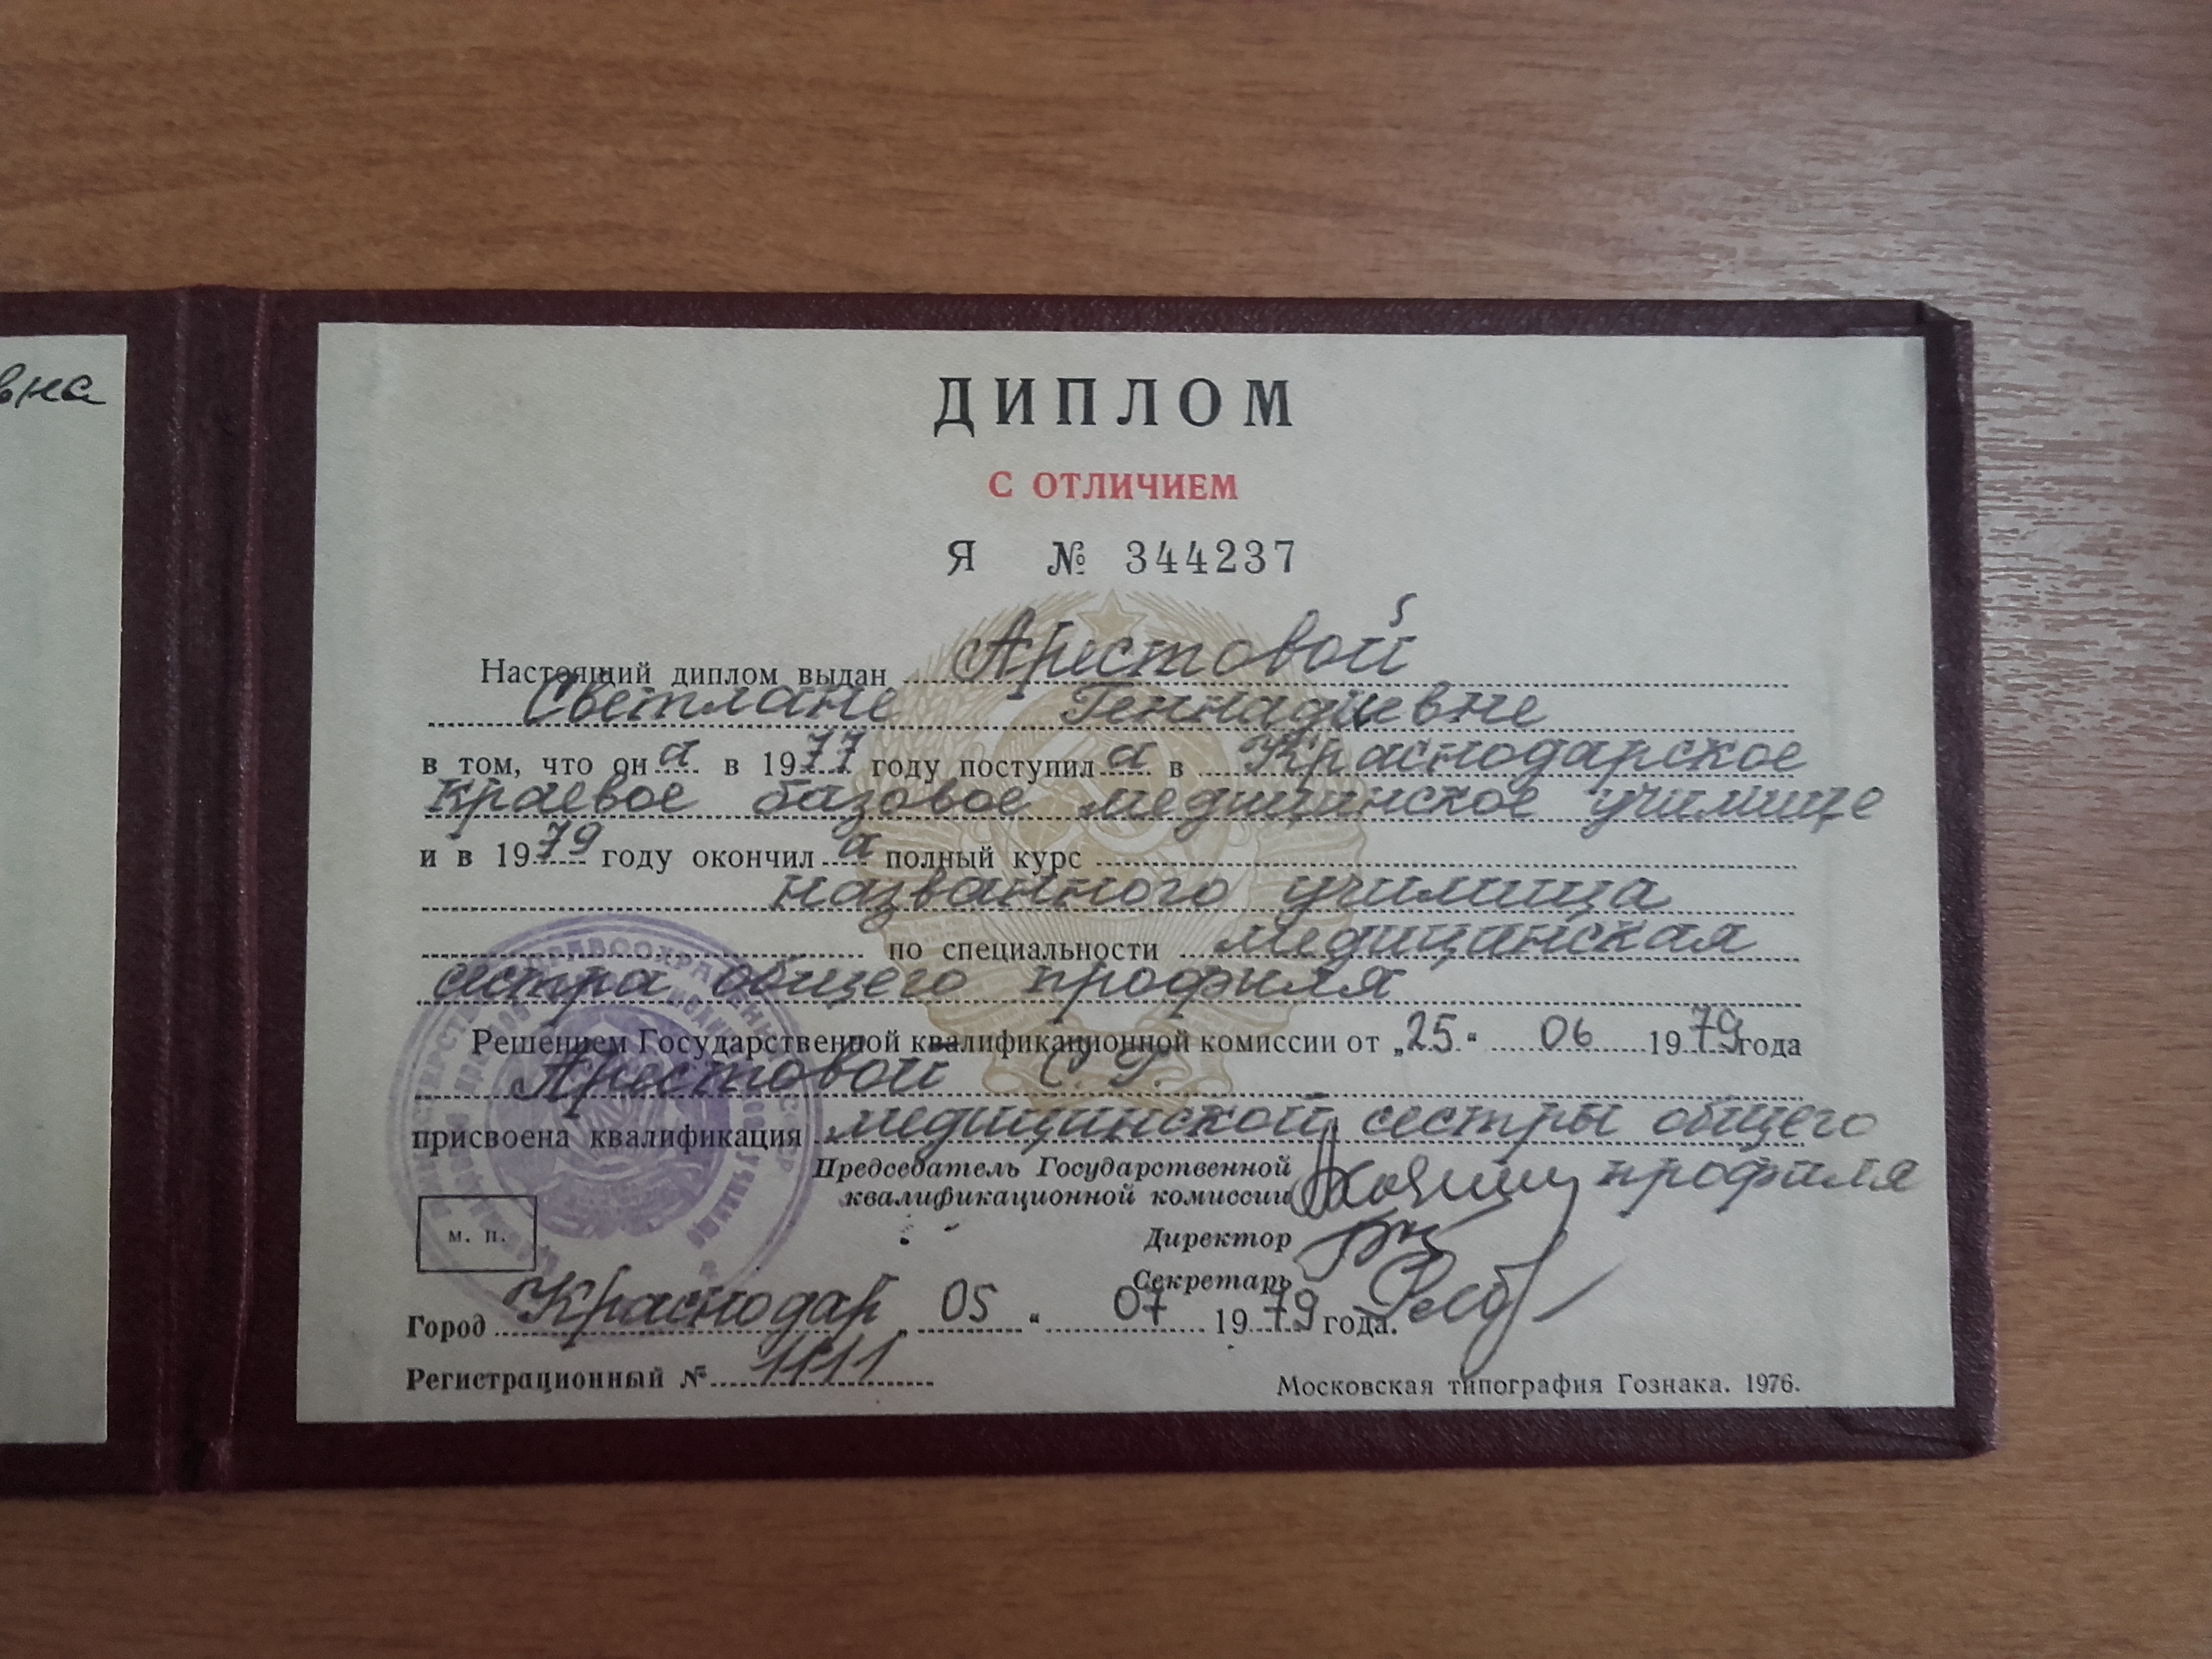 вна
ДИПЛОМ
С ОТЛИЧИЕМ
Я № 344237
Настоящий диплом выдан Аристовой
Светлане Геннадиевне
в том, что она в 1977 году поступила в Краснодарское
краевое базовое медицинское училище
и в 1979 году окончила полный курс
названного училища
по специальности медицинская
сестра общего профиля
Решением Государственной квалификационной комиссии от „25“ 06 1979 года
Аристовой С. Г.
присвоена квалификация медицинской сестры общего
профиля
Председатель Государственной
квалификационной комиссии
Директор
Секретарь
м. п.
Город Краснодар „ 05 “ 07 1979 года.
Регистрационный № 1111
Московская типография Гознака. 1976.